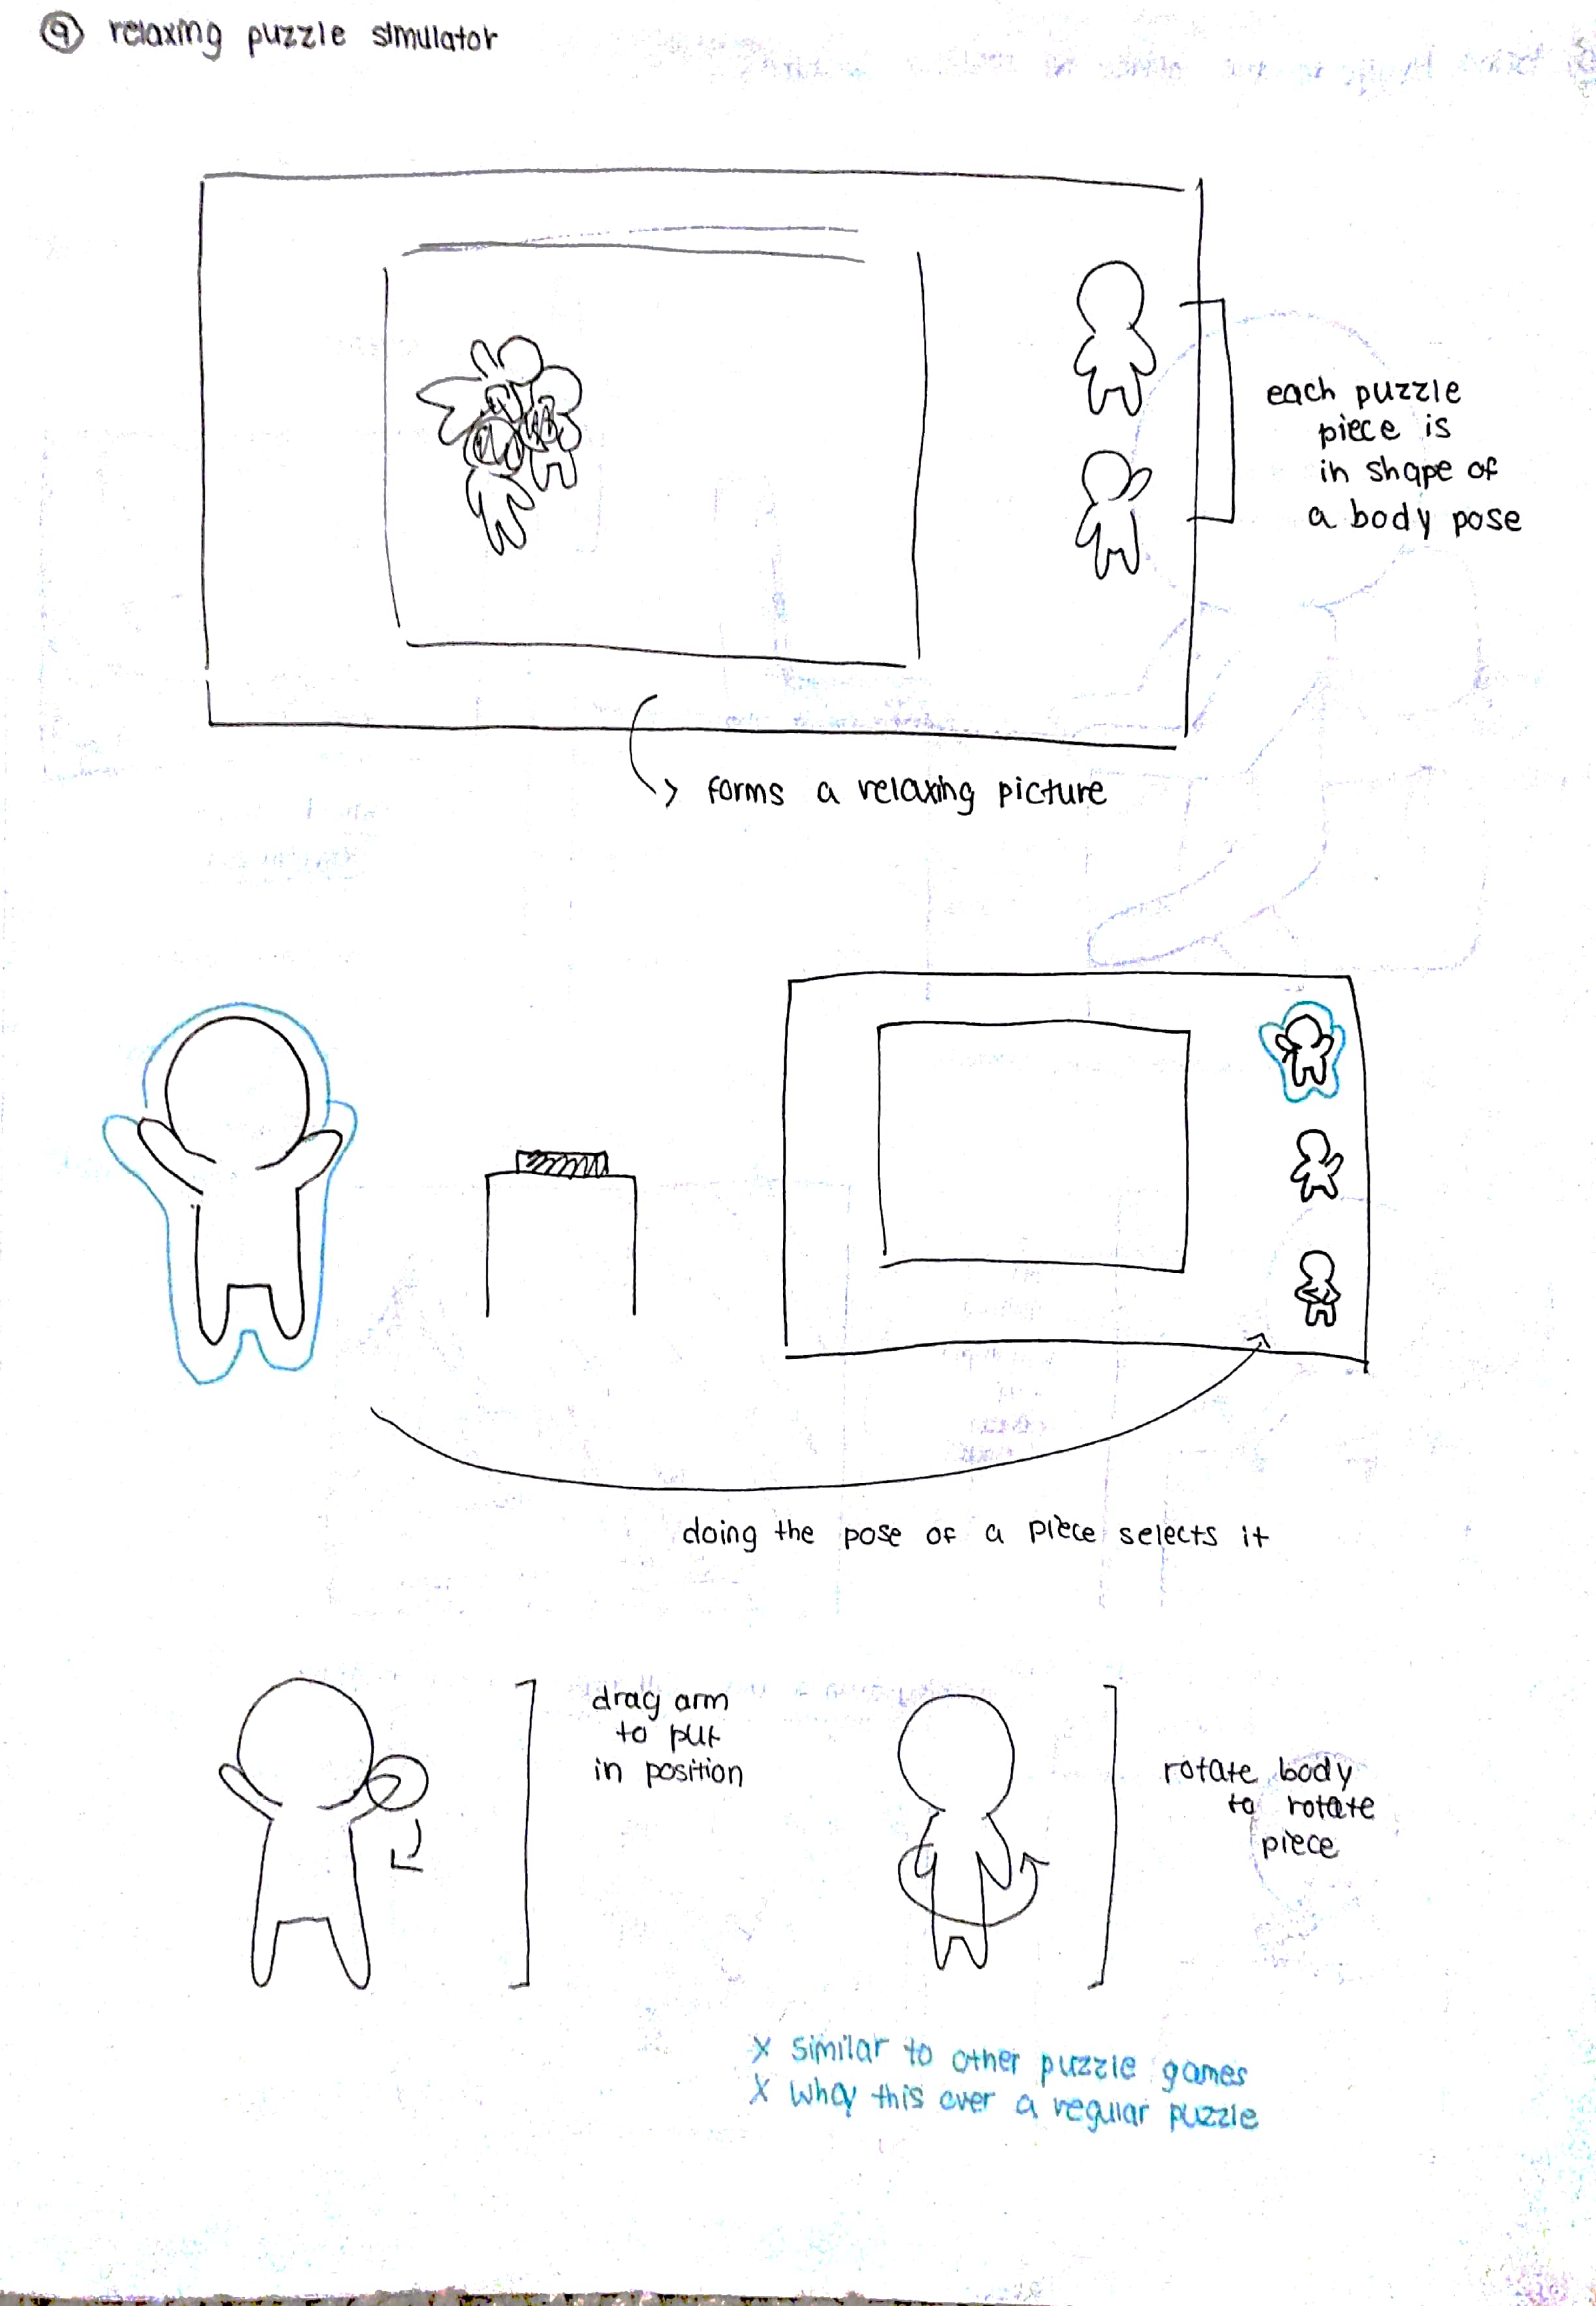 9 relaxing puzzle simulator
each puzzle
piece is
in shape of
a body pose
forms a relaxing picture
doing the pose of a piece selects it
drag arm
to put
in position
rotate body
to rotate
piece
x similar to other puzzle games
x whay this over a regular puzzle